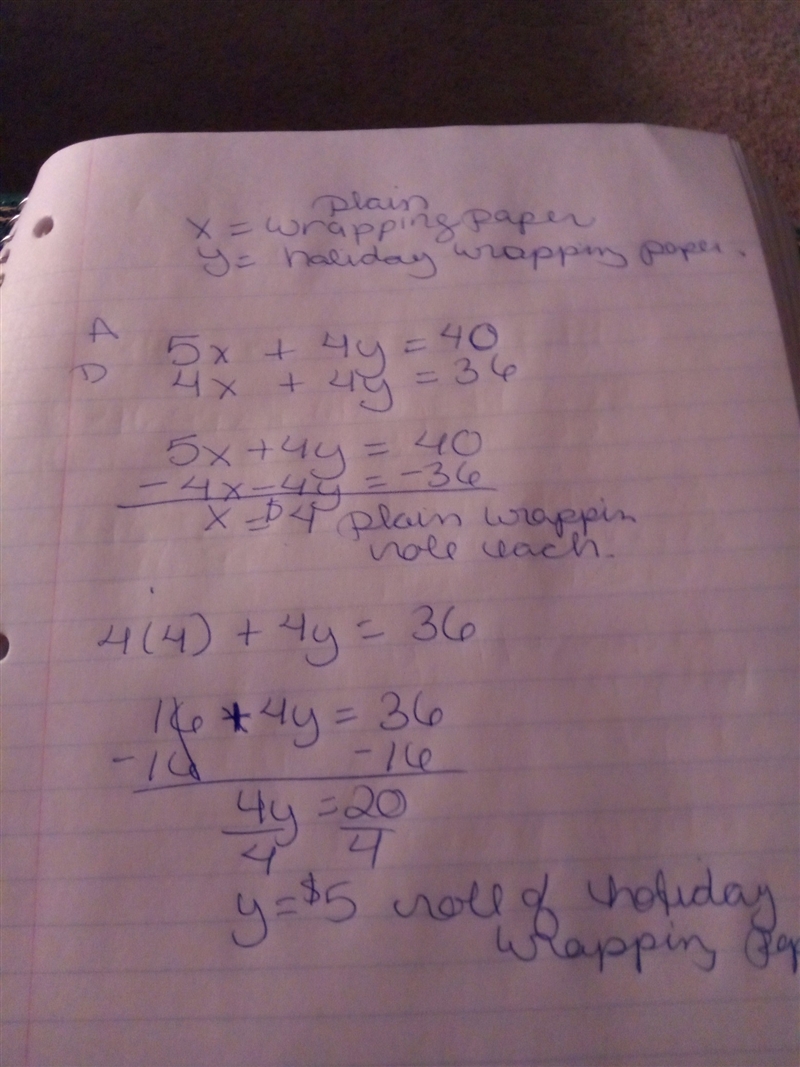 plain
x = wrapping paper
y = holiday wrappin paper.
A 5x + 4y = 40
D 4x + 4y = 36
5x + 4y = 40
- 4x - 4y = -36
x = $4 plain wrappin
role each.
4(4) + 4y = 36
16 + 4y = 36
-16 -16
4y = 20
4 4
y = $5 role of holiday
wrappin pap